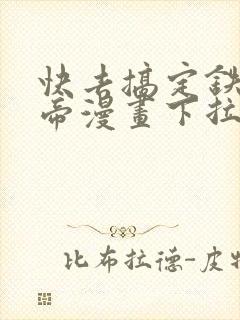 快去搞定鉄
帝漫畫下拉
比布拉德-皮特